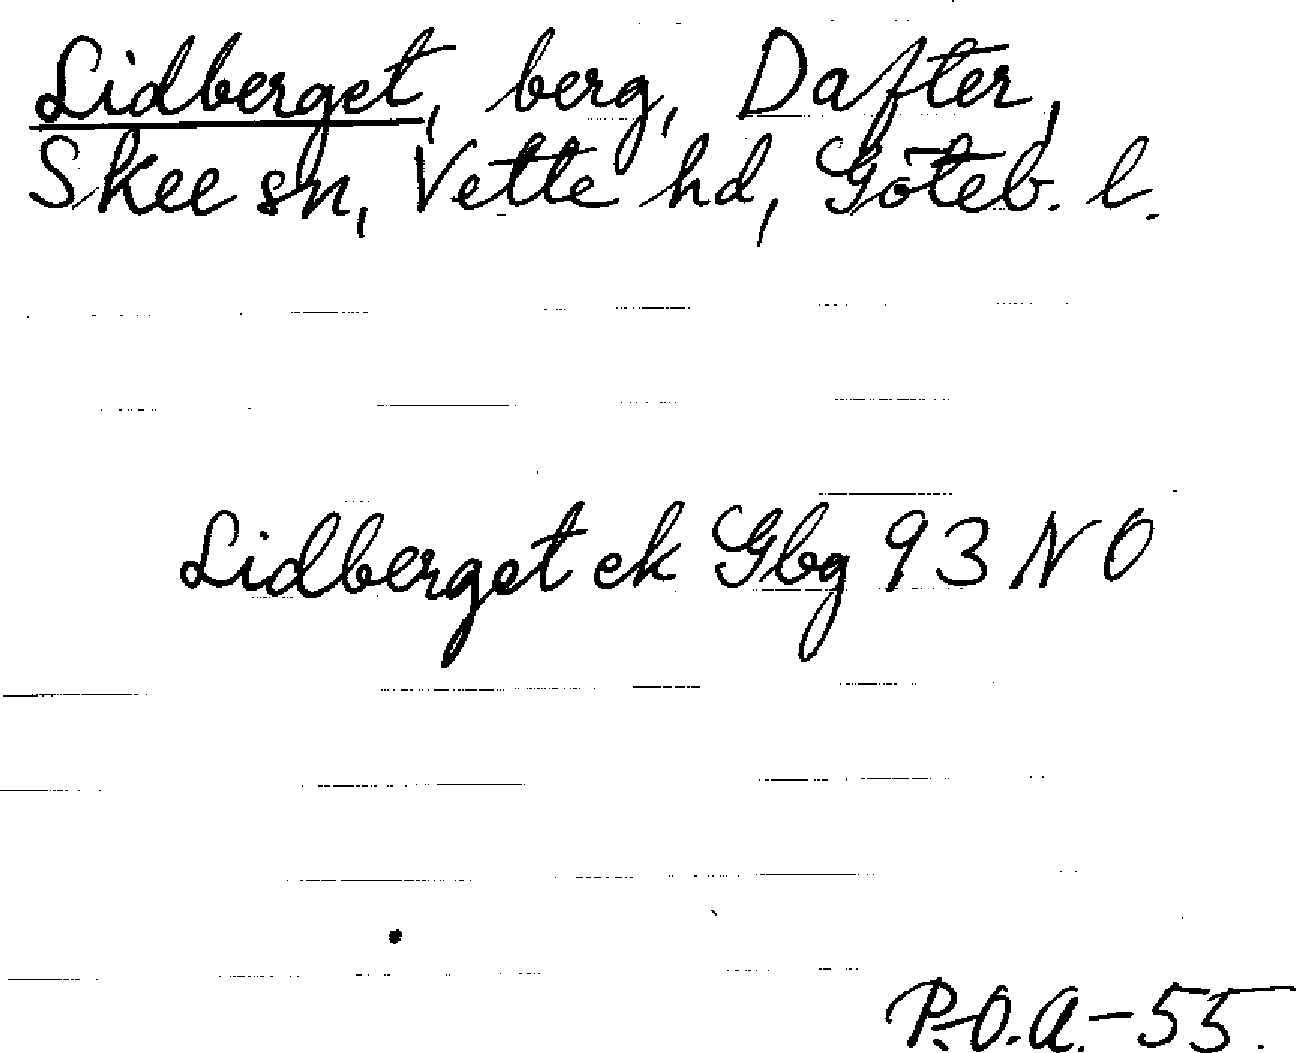 Lidberget, berg, Dafter,
Skee sn, Vette hd, Göteb. l.
Lidberget ek Gbg 93 NO
P.-O.A.-55.